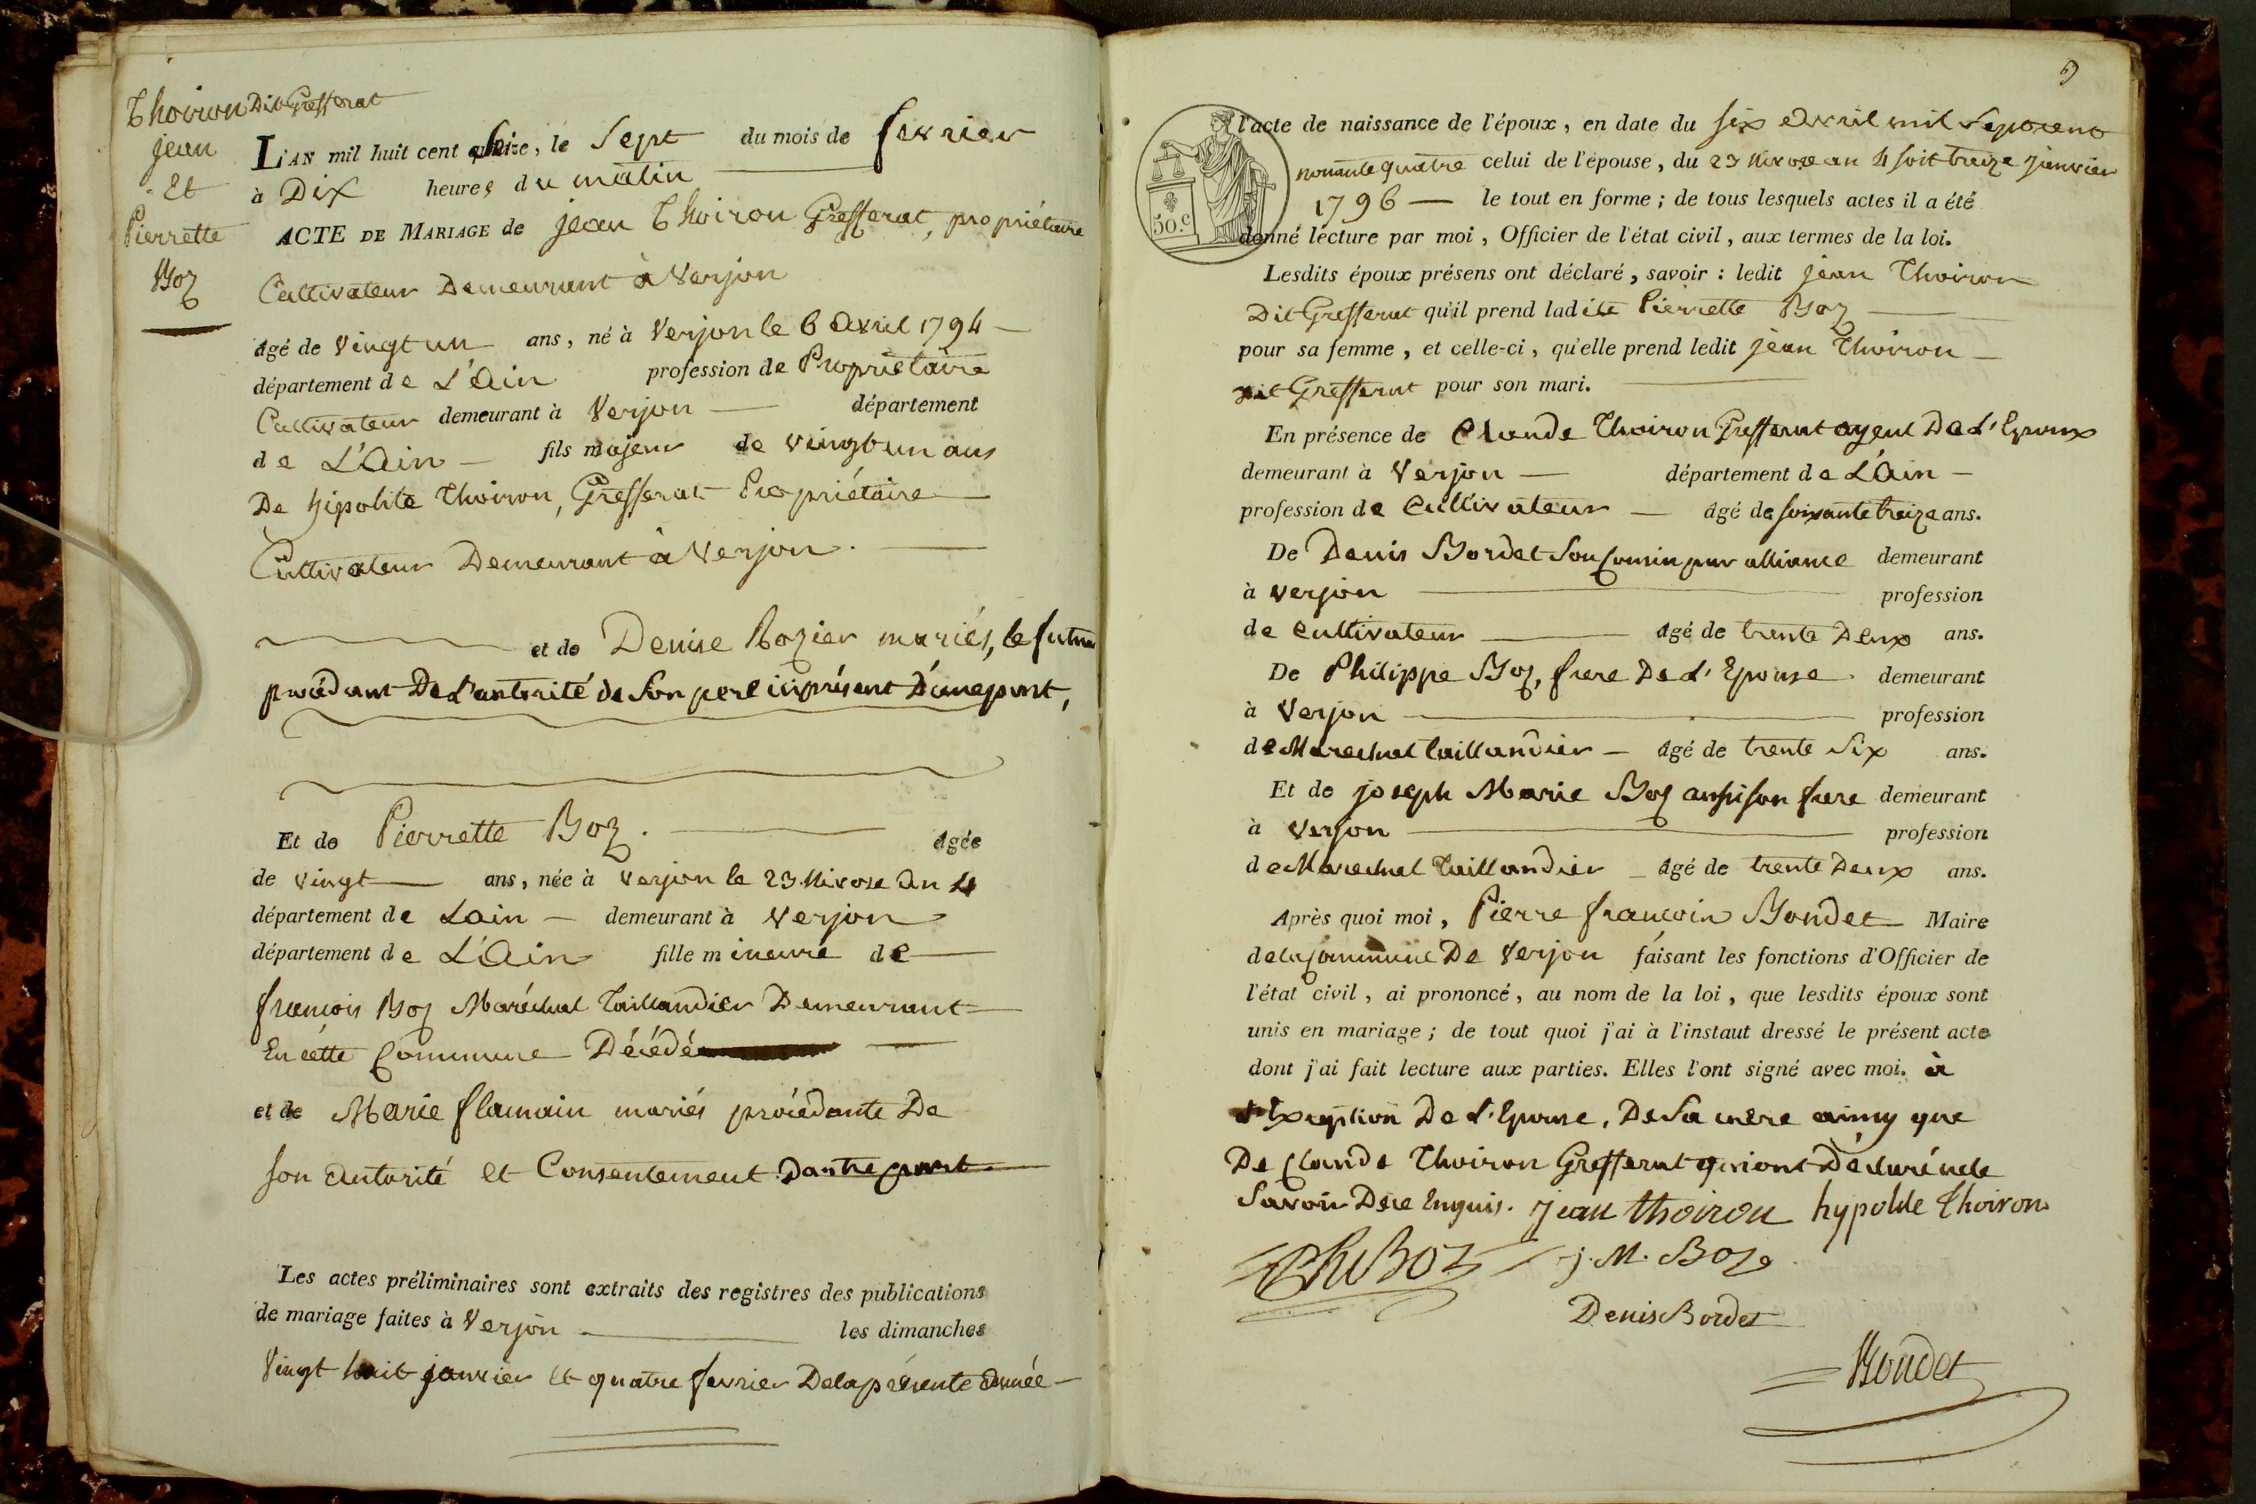 Thoiron Dit Grefferat
jean
Et
Pierrette
Boz
L'AN mil huit cent seize, le Sept du mois de fevrier
à Dix heures du matin
ACTE DE MARIAGE de jean Thoiron Grefferat, propriétaire
Cultivateur Demeurant à Verjon
âgé de vingt un ans, né à Verjon le 6 Avril 1794
département de L'Ain profession de Propriétaire
Cultivateur demeurant à Verjon département
de L'Ain fils majeur de vingt un ans
De hipolite Thoiron, Grefferat Propriétaire
Cultivateur Demeurant à Verjon.
et de Denise Rozier mariés, le futur
procédant De L'autorité de Son pere ici présent D'une part,
Et de Pierrette Boz. âgée
de vingt ans, née à Verjon le 23 Nivose an 4
département de Lain demeurant à Verjon
département de L'Ain fille mineure de
françois Boz Maréchal Taillandier Demeurant
En cétte Commune Décédé
et de Marie flamain mariés procédante De
son autorité et Consentement D'autre part
Les actes préliminaires sont extraits des registres des publications
de mariage faites à Verjon les dimanches
Vingt huit janvier et quatre fevrier De la présente année
9
50.c
l'acte de naissance de l'époux, en date du six avril mil Sept cent
nonante quatre celui de l'épouse, du 23 Nivose an 4 soit treize janvier
1796 le tout en forme; de tous lesquels actes il a été
donné lecture par moi, Officier de l'état civil, aux termes de la loi.
Lesdits époux présens ont déclaré, savoir : ledit jean Thoiron
Dit Grefferat qu'il prend ladite Pierrette Boz
pour sa femme, et celle-ci, qu'elle prend ledit jean Thoiron
Dit Grefferat pour son mari.
En présence de Claude Thoiron Grefferat ayeul De L'Epoux
demeurant à Verjon département de L'Ain
profession de Cultivateur âgé de soixante treize ans.
De Denis Bordet Son Cousin par alliance demeurant
à verjon profession
de cultivateur âgé de trente Deux ans.
De Philippe Boz, frere De L'Epouse demeurant
à Verjon profession
de Marechal taillandier âgé de trente Six ans.
Et de joseph Marie Boz aussi son frere demeurant
à Verjon profession
de Marechal Taillandier âgé de trente Deux ans.
Après quoi moi, Pierre françois Bondet Maire
de la Commune De Verjon faisant les fonctions d'Officier de
l'état civil, ai prononcé, au nom de la loi, que lesdits époux sont
unis en mariage; de tout quoi j'ai à l'instaut dressé le présent acte
dont j'ai fait lecture aux parties. Elles l'ont signé avec moi. à
L'Exception De L'Epouse, De Sa mere ainsy que
De Claude Thoiron Grefferat qui ont Déclaré ne le
Savoir De ce Enquis. jean thoiron hypolite thoiron
Ph Boz j. M. Boz
Denis Bordet
Bondet